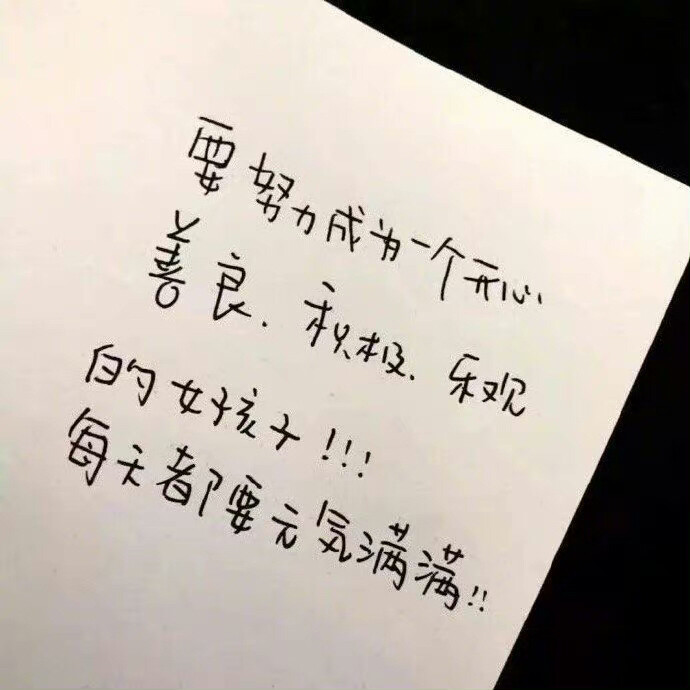 要努力成为一个开心
善良.积极.乐观
的女孩子!!!
每天都要元気满满!!